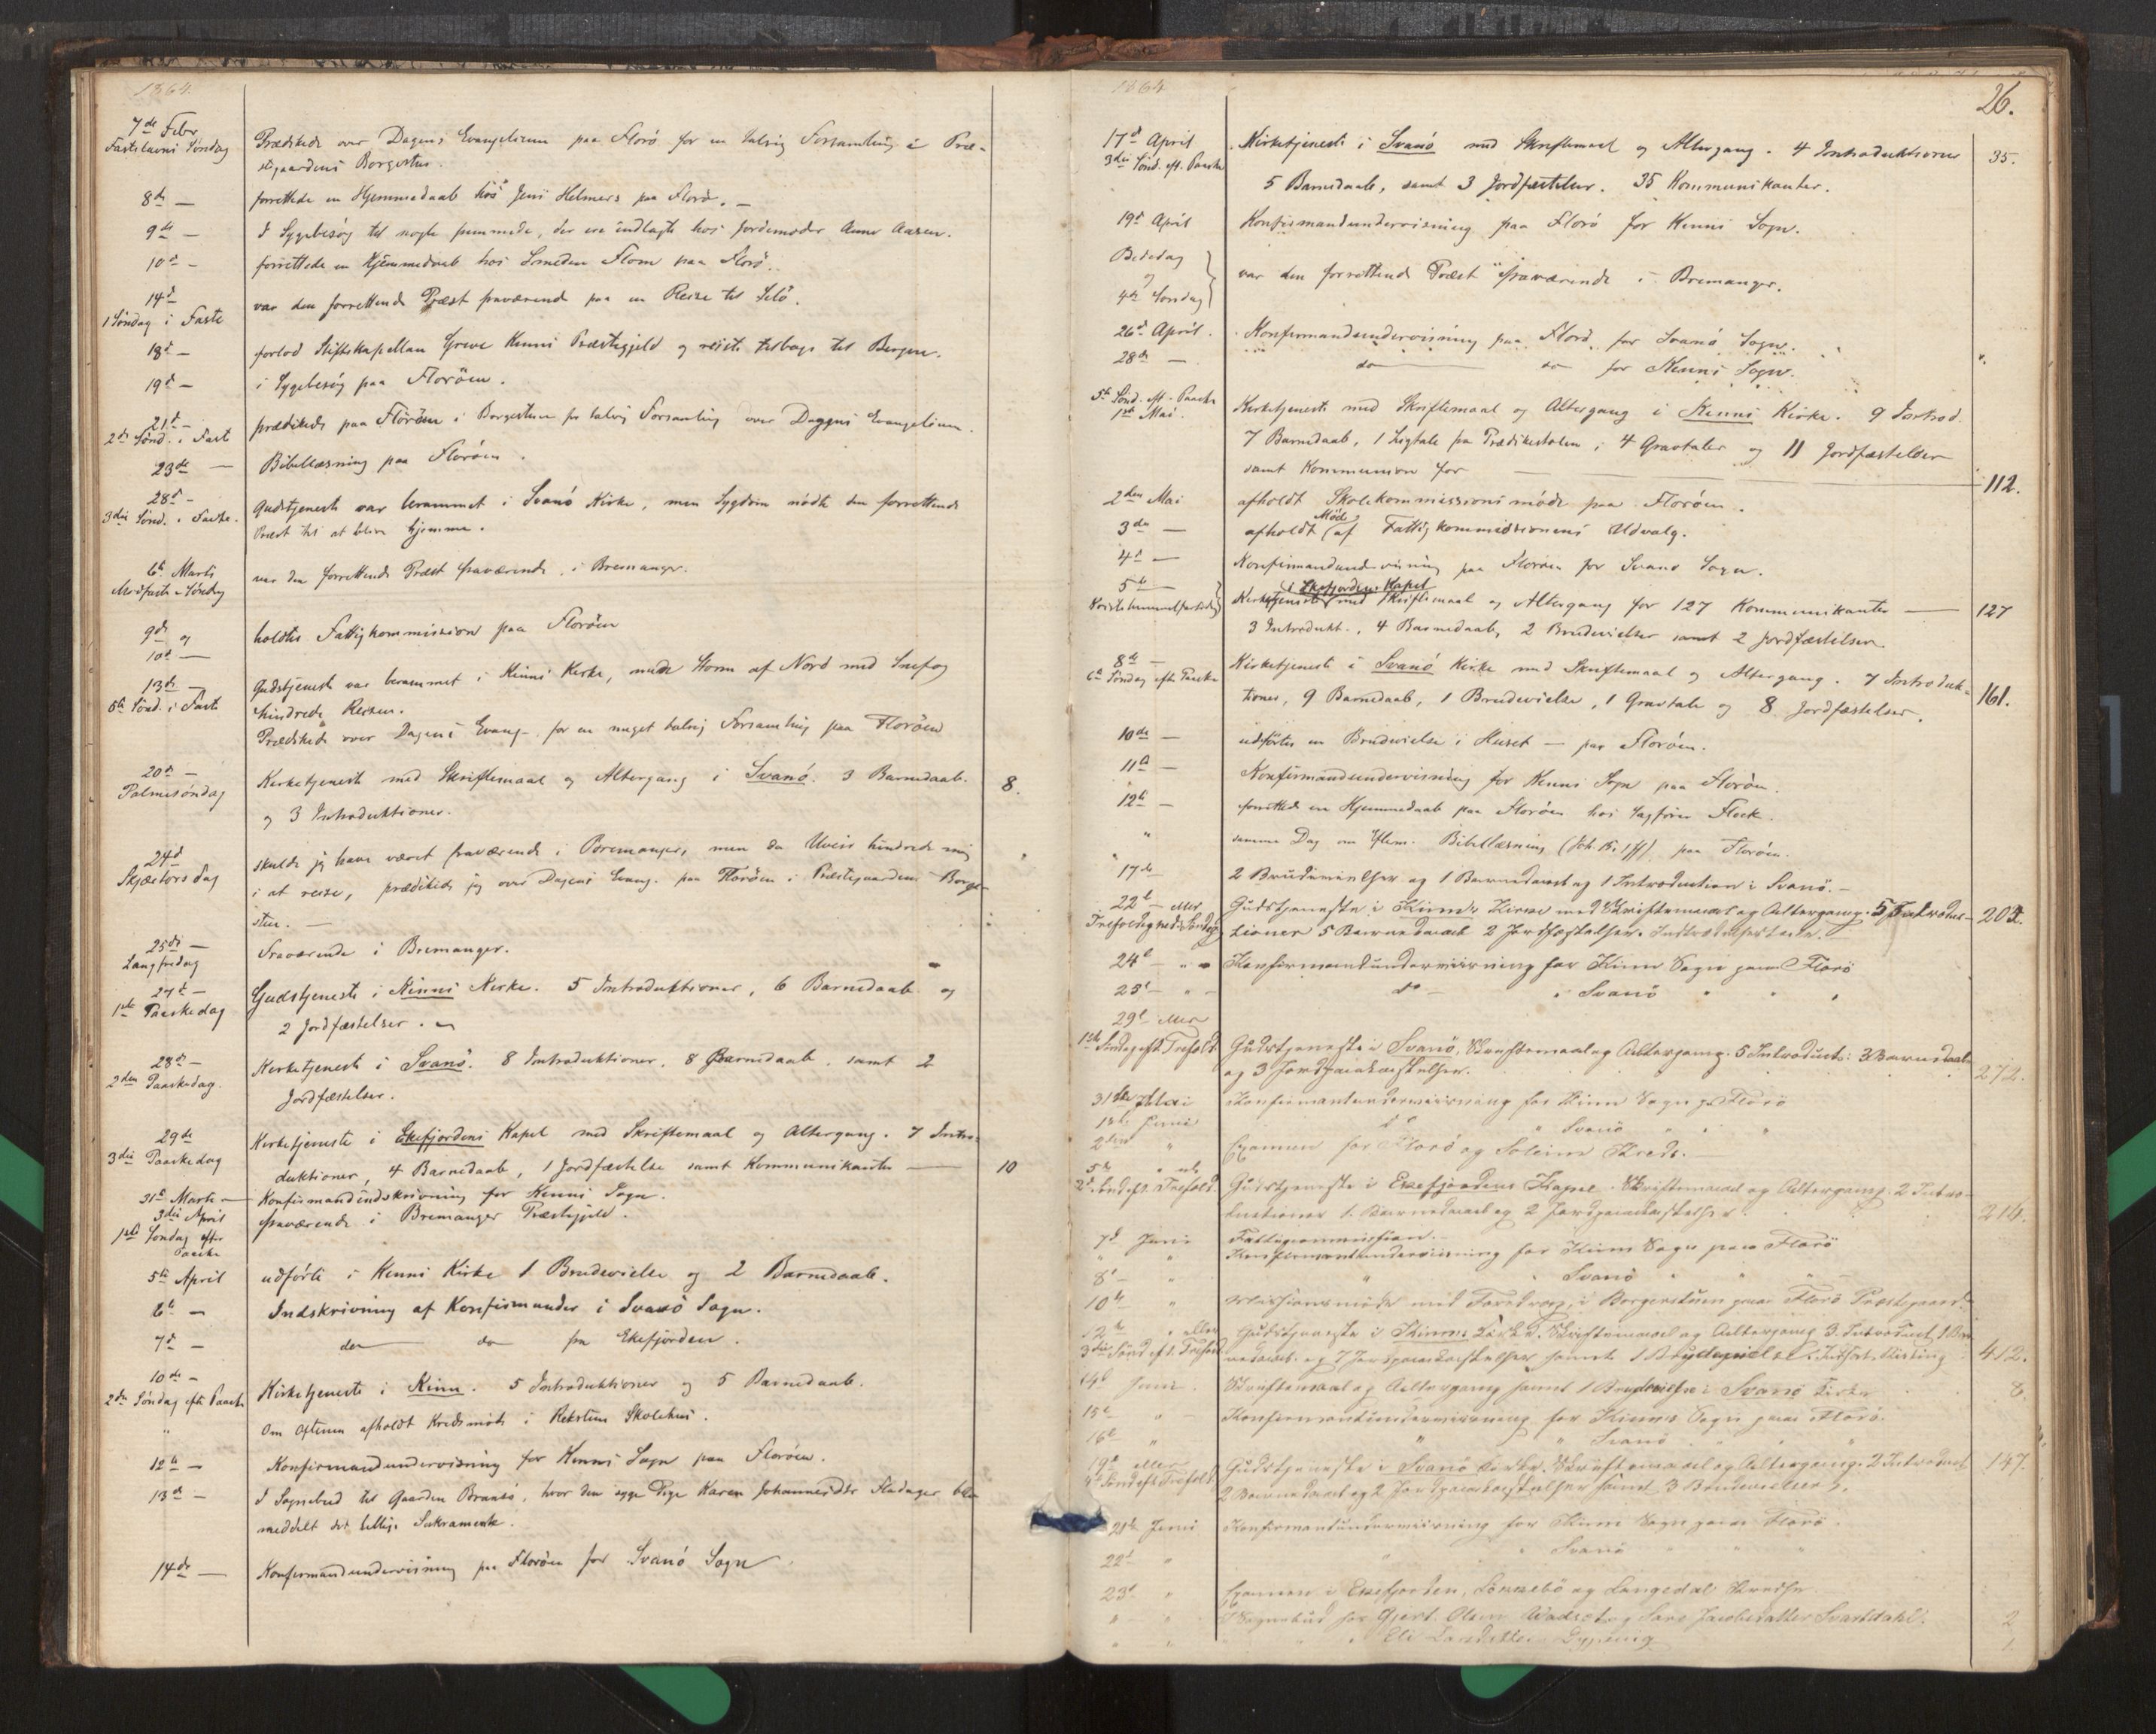 1864.
7de Febr Prædikede over Dagens Evangelium paa Florö for en talrig Forsamling i Præ-
Fastelavns Söndag stegaardens Borgestue.
8de — forrettede en Hjemmedaab hos Jens Helmers paa Florö. —
9de — I Sygebesög til nogle fremmede, der ere indlagte hos Jordemoder Anne Aasen.
10de — forrettede en Hjemmedaab hos Smeden Flom paa Florö.
14de var den forrettende Præst fraværende paa en Reise til Selö.
1 Söndag i Faste
18de — forlod Stiftskapellan Greve Kinns Præstegjeld og reiste tilbage til Bergen.
19de — i Sygebesög paa Floröen.
21de — prædikede paa Floröen i Borgestuen for talrig Forsamling over Dagens Evangelium.
2den Sönd. i Faste
23de — Bibellæsning paa Floröen.
28de — Gudstjeneste var berammet i Svanö Kirke, men Sygdom nödte den forrettende
3die Sönd. i Faste. Præst til at blive hjemme.
6te Marts var den forrettende Præst fraværende i Bremanger.
Midfaste Söndag
9de og holdtes Fattigkommission paa Floröen
10de —
13de — Gudstjeneste var berammet i Kinns Kirke, men Storm af Nord med Snefog
5te Sönd. i Faste hindrede Reisen.
Prædikede over Dagens Evang. for en meget talrig Forsamling paa Floröen
20de — Kirketjeneste med Skriftemaal og Altergang i Svanö. 3 Barnedaab. 8.
Palmesöndag og 3 Introduktioner.
24de skulde jeg have været fraværende i Bremanger, men da Uveir hindrede mig
Skjærtorsdag i at reise, prædikede jeg over Dagens Evang. paa Floröen i Præstegaardens Borge-
stue. —
25de — Fraværende i Bremanger.
Langfredag
27de — Gudstjeneste i Kinns Kirke. 5 Introduktioner, 6 Barnedaab og
1ste Paaskedag 2 Jordfæstelser.
28de — Kirketjeneste i Svanö. 8 Introduktioner. 8 Barnedaab. samt 2
2den Paaskedag. Jordfæstelser.
29de Kirketjeneste i Ekefjordens Kapel med Skriftemaal og Altergang. 7 Intro-
3die Paaskedag duktioner, 4 Barnedaab, 1 Jordfæstelse samt Kommunikanter — 10
31te Marts — Konfirmandindskrivning for Kinns Sogn.
3die April fraværende i Bremanger Præstegjeld.
1ste Söndag efter
Paaske
5te April udförte i Kinns Kirke 1 Brudevielse og 2 Barnedaab.
6te — Indskrivning af Konfirmander i Svanö Sogn.
7de — do — do fra Ekefjorden.
10de — Kirketjeneste i Kinn. 5 Introduktioner og 5 Barnedaab.
2den Söndag efter Paaske
" Om Aftenen afholdt Kredsmöde i Rekstens Skolehus.
12te — Konfirmandundervisning for Kinns Sogn paa Floröen.
13de — I Sognebud til Gaarden Brandsö, hvor den syge Pige Karen Johannesdtr blev
meddelt det hellige Sakramente.
14de — Konfirmandundervisning paa Floröen for Svanö Sogn
1864
26.
17de April Kirketjeneste i Svanö med Skriftemaal og Altergang. 4 Introduktioner 35.
3die Sönd. eft. Paaske 5 Barnedaab, samt 3 Jordfæstelser. 35 Kommunikanter.
19de April Konfirmandundervisning paa Florö for Kinns Sogn.
Bededag
og var den forrettende Præst fraværende i Bremanger.
4de Söndag
26de April. Konfirmandundervisning paa Florö for Svanö Sogn.
28de — do — do for Kinns Sogn.
5te Sönd. eft. Paaske
1ste Mai. Kirketjeneste med Skriftemaal og Altergang i Kinns Kirke. 9 Introd.
7 Barnedaab, 1 Ligtale fra Prædikestolen, 4 Gravtaler og 11 Jordfæstelser
samt Kommunion for — 112.
2den Mai afholdt Skolekommissionsmöde paa Floröen.
3die — afholdt Möde af Fattigkommissionens Udvalg.
4de — Konfirmandundervisning paa Floröen for Svanö Sogn.
5te — i Ekefjordens Kapel
Kristi himmelfartsdag Kirketjeneste med Skriftemaal og Altergang for 127 Kommunikanter — 127
3 Introdukt., 4 Barnedaab, 2 Brudevielser samt 2 Jordfæstelser.
8de — Kirketjeneste i Svanö Kirke med Skriftemaal og Altergang. 7 Introduk-
6te Söndag efter Paaske tioner, 9 Barnedaab, 1 Brudevielse, 1 Gravtale og 8 Jordfæstelser. 161.
10de — udförtes en Brudevielse i Huset — paa Floröen.
11te — Konfirmandundervisning for Kinns Sogn paa Floröen.
12te — forrettede en Hjemmedaab paa Floröen hos Sagförer Fleek.
" samme Dag om Eftem. Bibellæsning (Joh. 15. 1 ff) paa Floröen.
17de 2 Brudevielser og 1 Barnedaab og 1 Introduction i Svanö. —
22de — eller Gudstjeneste i Kinns Kirke med Skriftemaal og Altergang. 5 Introduc-
Trefoldigheds Söndag tioner 5 Barnedaab 2 Jordfæstelser. 202.
24de " — Konfirmandundervisning for Kinn Sogn paa Florö
25de — " — do — " Svanö " " "
29de eller
1ste Söndag eft. Trefold. Gudstjeneste i Svanö, Skriftemaal og Altergang. 5 Introduct: 3 Barnedaab
og 3 Jordpaakastelser. 272.
31te Mai Konfirmandundervisning for Kinn Sogn paa Florö
1ste Juni do " Svanö " " "
2den " Examen for Florö og Solheim Kreds.
5te " eller
2den Sönd eft. Trefold. Gudstjeneste i Ekefjordens Kapel. Skriftemaal og Altergang. 2 Intro-
ductioner 1 Barnedaab og 2 Jordpaakastelser. 214.
7de Juni Fattigcommission.
" " Konfirmandundervisning for Kinn Sogn paa Florö
8de — " " " Svanö " " "
10de " Missionsmöde med Foredrag i Borgerstuen paa Florö Præstegaard.
12te " eller Gudstjeneste i Kinns Kirke. Skriftemaal og Altergang 3. Introduct, 1 Bar-
3die Sönd eft. Trefold nedaab og 7 Jordpaakastelser samt 1 Brudevielse. 412.
14de Juni. Skriftemaal og Altergang samt 1 Brudevielse i Svanö Kirke 8.
15de " Konfirmandundervisning for Kinns Sogn paa Florö.
16de " " " Svanö " "
19de eller Gudstjeneste i Svanö Kirke. Skriftemaal og Altergang. 2 Introduct 147.
4de Sönd eft Trefold. 2 Barnedaab og 2 Jordpaakastelser samt 3 Brudevielser.
21de Juni Konfirmandundervisning for Kinn Sogn paa Florö.
22de " " Svanö " " "
23de " Examen i Ekefjorden, Lökkebö og Langedal Kredse.
" " " I Sognebud hos Gjert Olsen og Sare Jacobsdatter Svartdahl. 2
" " " " 1.